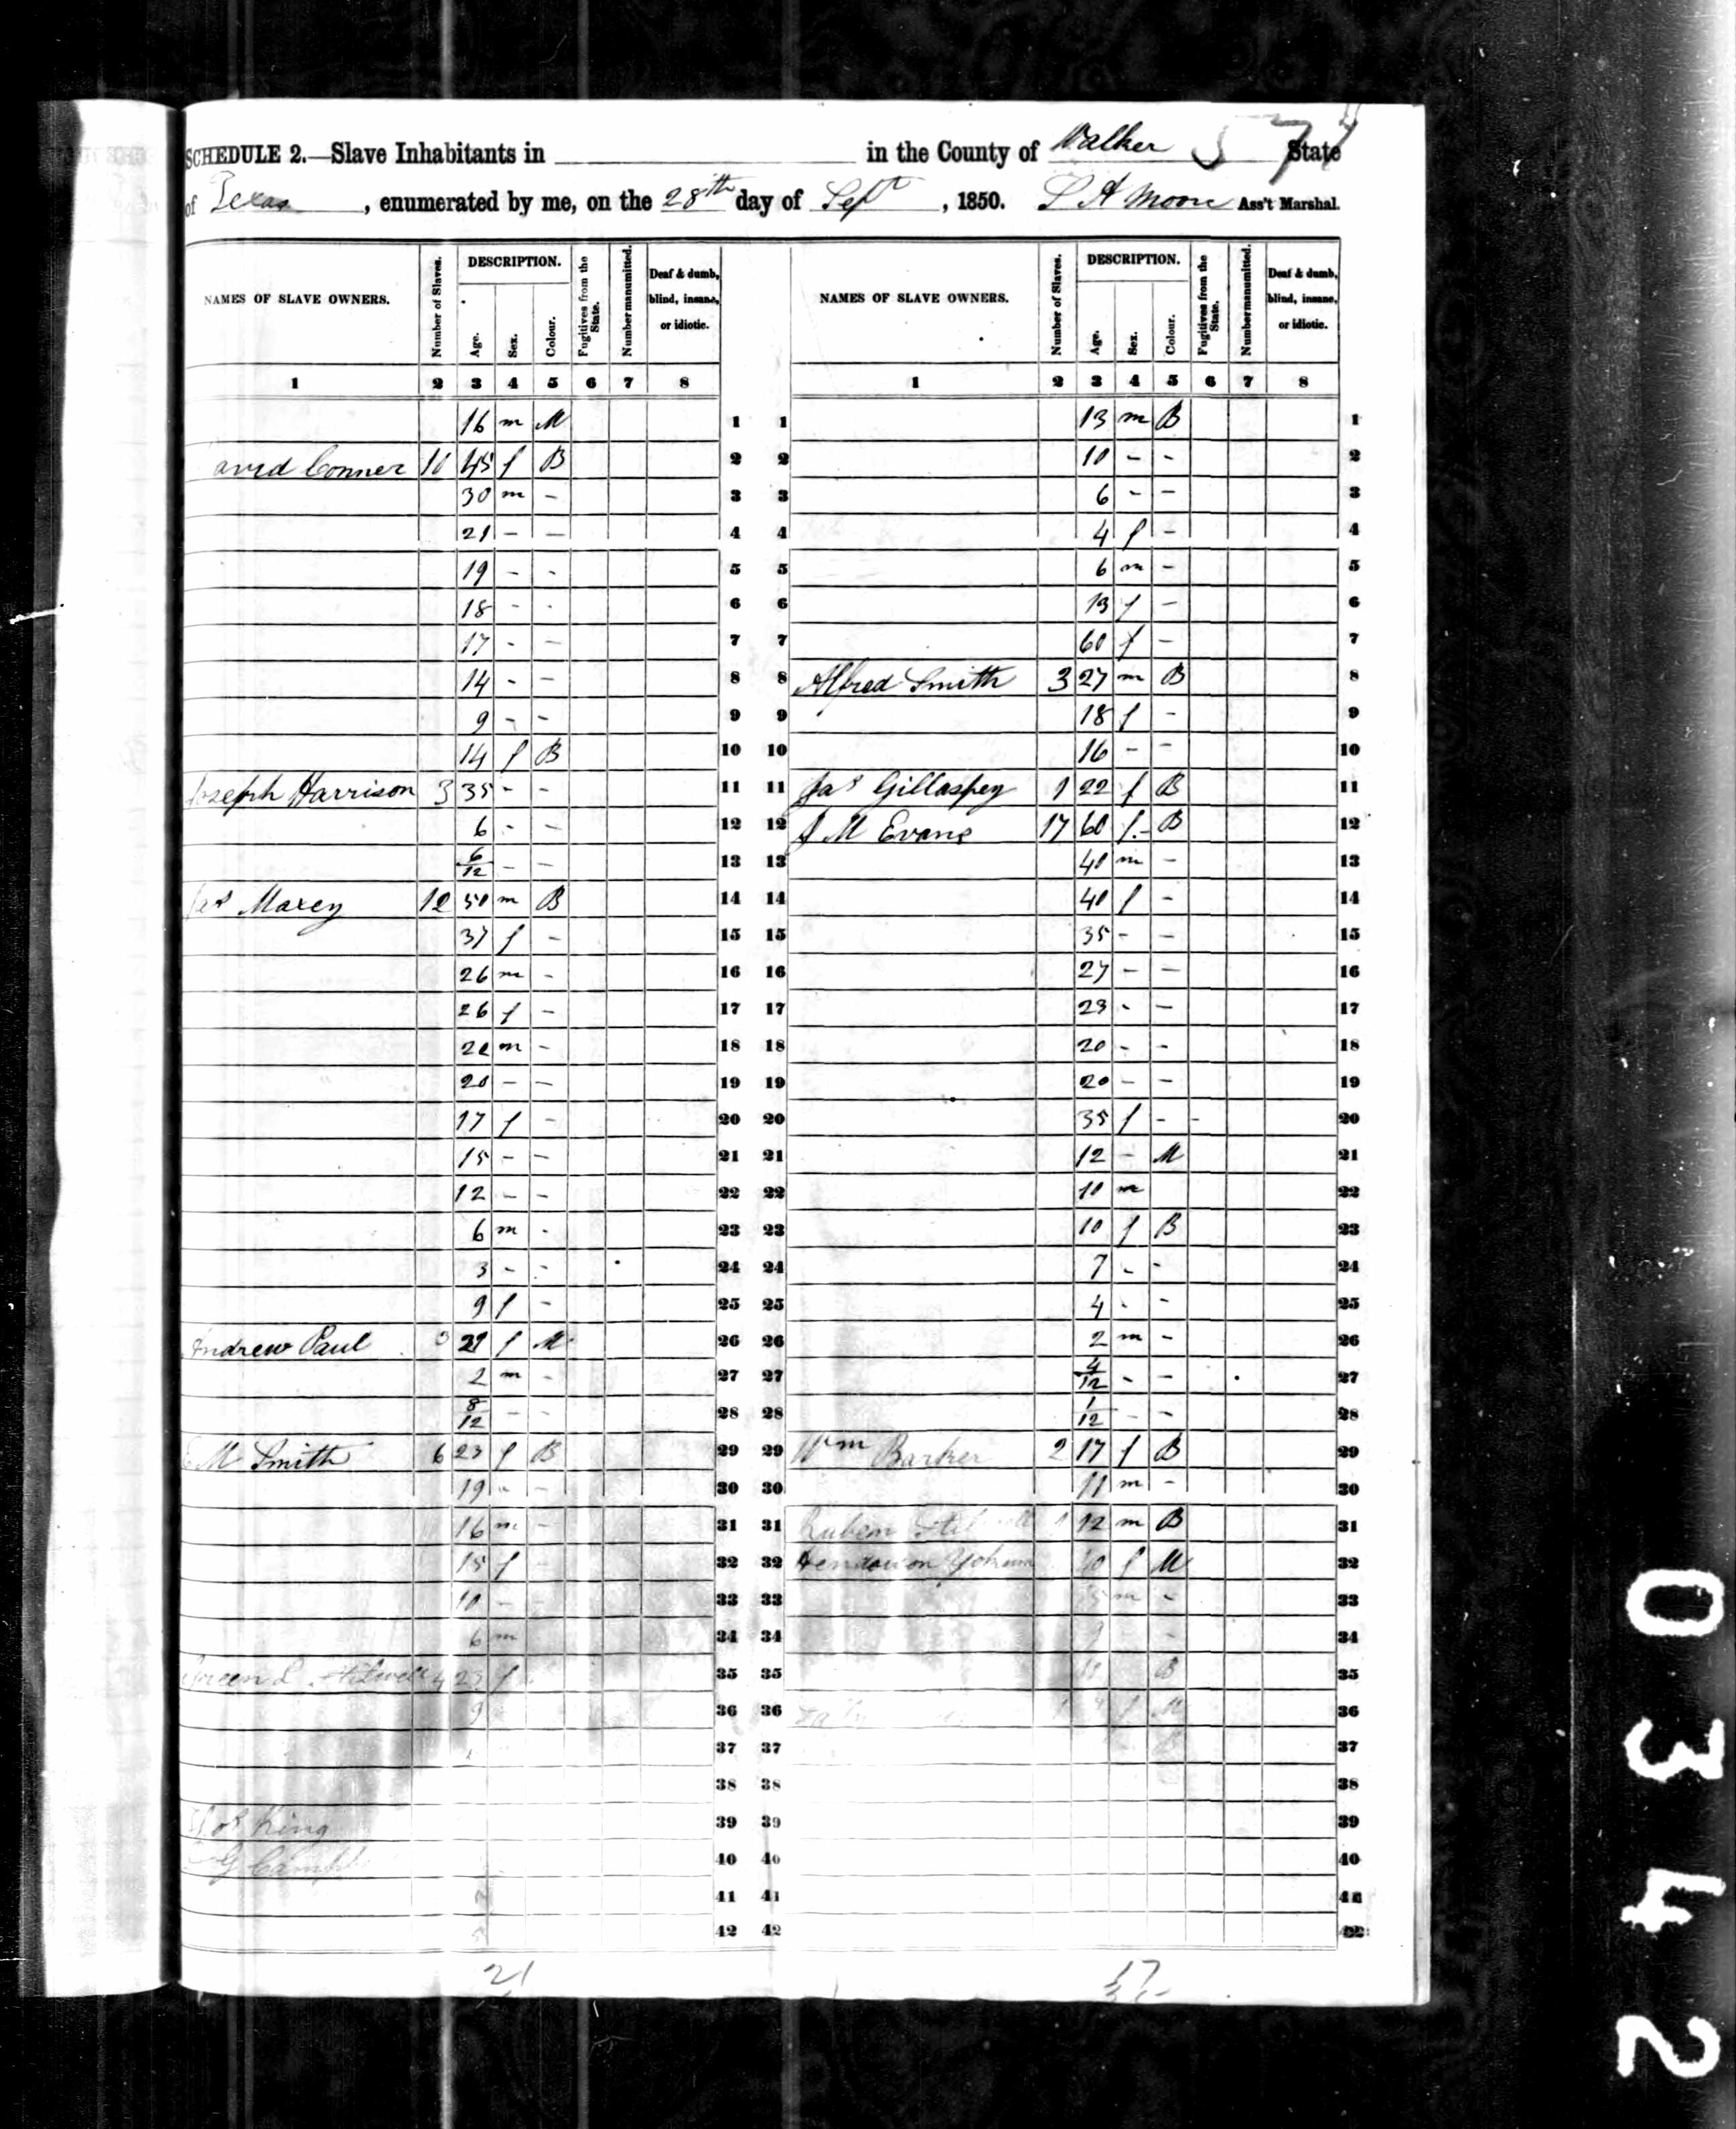 SCHEDULE 2.—Slave Inhabitants in in the County of Walker State
of Texas, enumerated by me, on the 28th day of Sept, 1850. L A Moore Ass't Marshal.
NAMES OF SLAVE OWNERS. Number of Slaves. DESCRIPTION. Age. Sex. Colour. Fugitives from the State. Number manumitted. Deaf & dumb, blind, insane, or idiotic. NAMES OF SLAVE OWNERS. Number of Slaves. DESCRIPTION. Age. Sex. Colour. Fugitives from the State. Number manumitted. Deaf & dumb, blind, insane, or idiotic.
1 2 3 4 5 6 7 8 1 2 3 4 5 6 7 8
16 m M 1 1 13 m B 1
avid Conner 10 45 f B 2 2 10 - - 2
30 m - 3 3 6 - - 3
21 - - 4 4 4 f - 4
19 - - 5 5 6 m - 5
18 - - 6 6 13 f - 6
17 - - 7 7 60 f - 7
14 - - 8 8 Alfred Smith 3 27 m B 8
9 - - 9 9 18 f - 9
14 f B 10 10 16 - - 10
Joseph Harrison 3 35 - - 11 11 Jas Gillaspey 1 22 f B 11
6 - - 12 12 J M Evans 17 60 f - B 12
6/12 - - 13 13 40 m - 13
Jas Maxey 12 50 m B 14 14 40 f - 14
37 f - 15 15 35 - - 15
26 m - 16 16 27 - - 16
26 f - 17 17 23 - - 17
m - 18 18 20 - - 18
20 - - 19 19 20 - - 19
17 f - 20 20 35 f - - 20
15 - - 21 21 12 - M 21
12 - - 22 22 10 m 22
6 m - 23 23 10 f B 23
3 - - 24 24 7 - - 24
9 f - 25 25 4 - - 25
Andrew Paul 3 21 f M 26 26 2 m - 26
2 m - 27 27 4/12 - - 27
8/12 - - 28 28 1/12 - - 28
M Smith 6 23 f B 29 29 Wm Barker 2 17 f B 29
19 - - 30 30 11 m - 30
16 m - 31 31 Ruben 12 m B 31
15 f - 32 32 Yohum f M 32
10 - - 33 33 m - 33
6 m 34 34 - 34
Green Stilwell 4 23 f 35 35 B 35
9 36 36 f M 36
37 37 37
38 38 38
King 39 39 39
G 40 40 40
41 41 41
42 42 42
21
0342